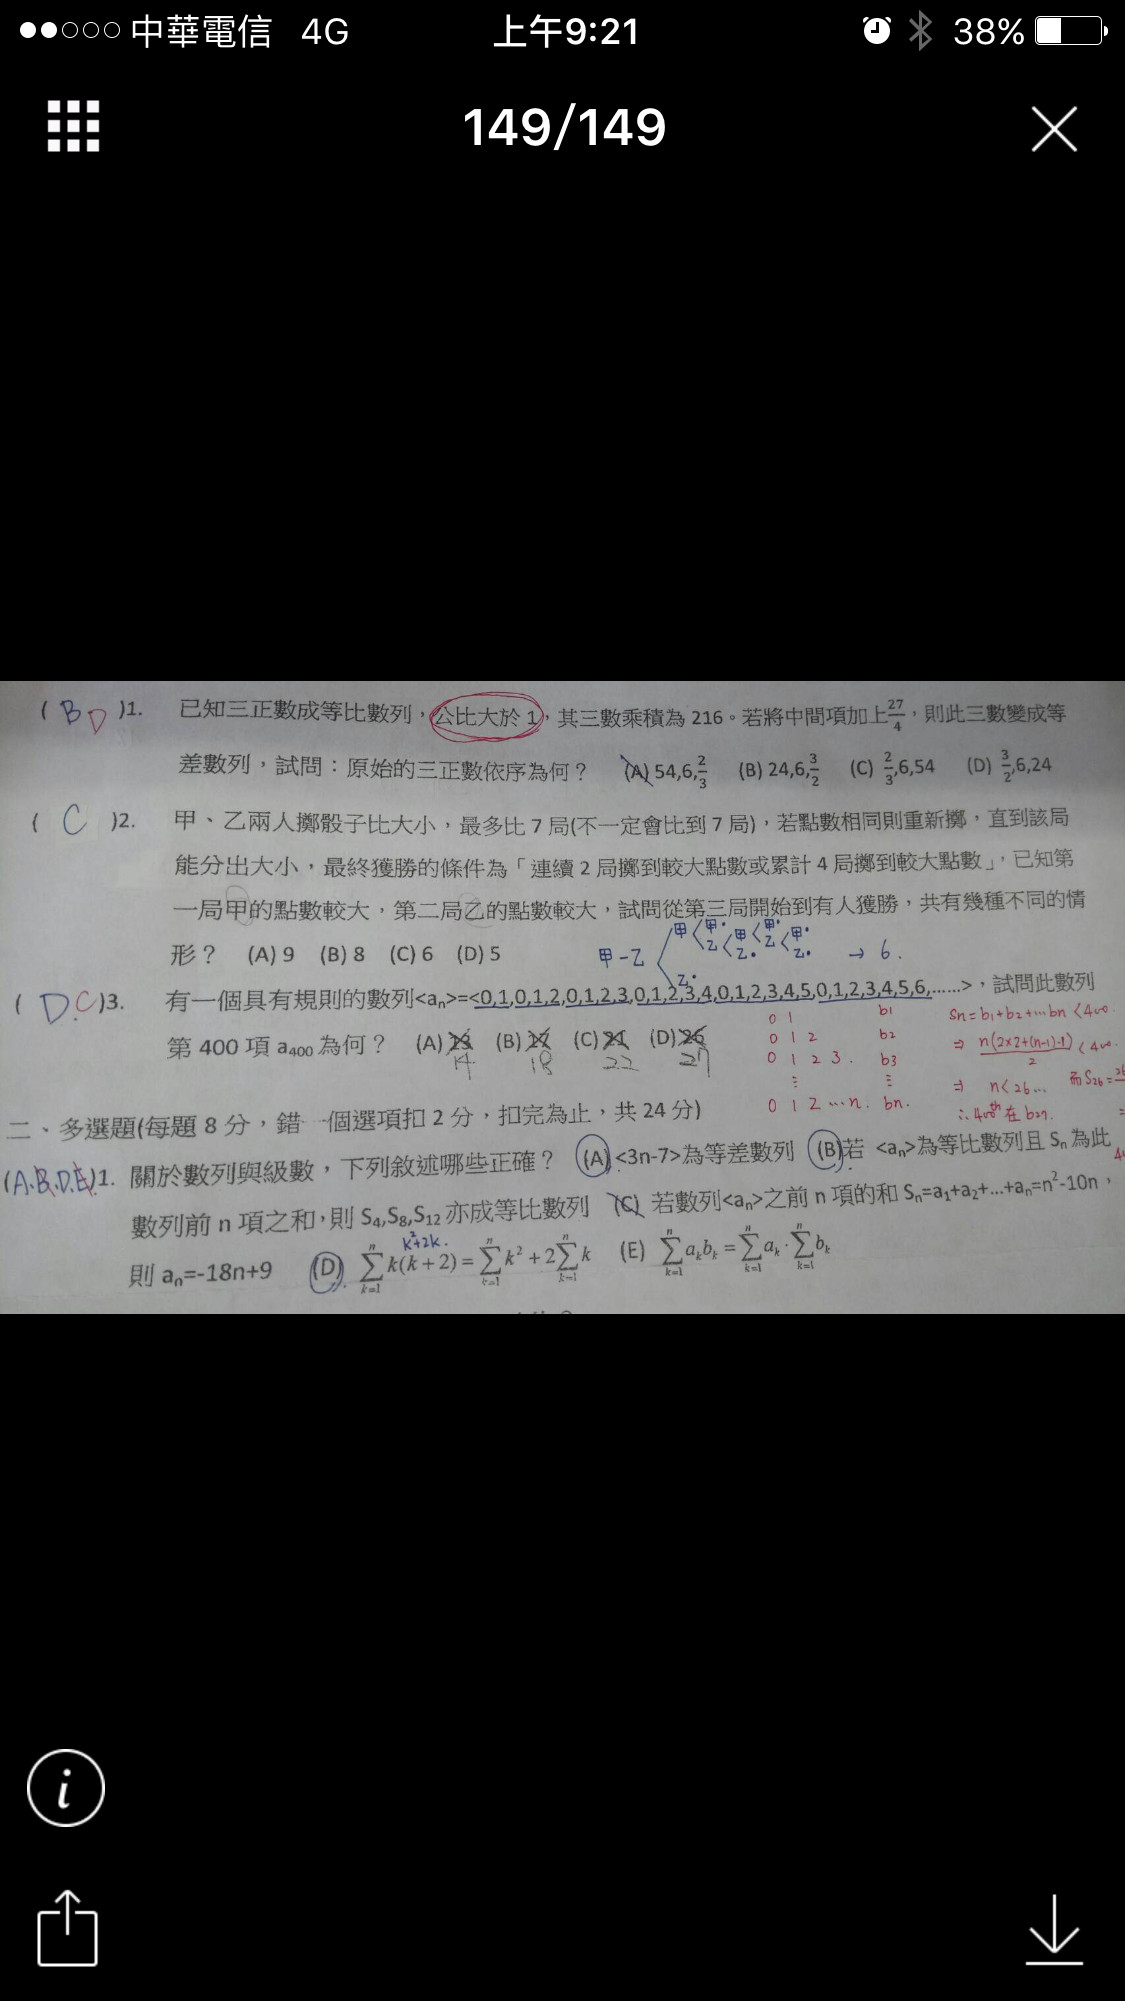 中華電信 4G 上午9:21 38%
149/149
( B D )1. 已知三正數成等比數列，公比大於 1，其三數乘積為 216。若將中間項加上27/4，則此三數變成等
差數列，試問：原始的三正數依序為何？ (A) 54,6,2/3 (B) 24,6,3/2 (C) 2/3,6,54 (D) 3/2,6,24
( C )2. 甲、乙兩人擲骰子比大小，最多比 7 局(不一定會比到 7 局)，若點數相同則重新擲，直到該局
能分出大小，最終獲勝的條件為「連續 2 局擲到較大點數或累計 4 局擲到較大點數」，已知第
一局甲的點數較大，第二局乙的點數較大，試問從第三局開始到有人獲勝，共有幾種不同的情
形？ (A) 9 (B) 8 (C) 6 (D) 5
甲-乙 甲 甲 乙 甲 乙 甲 乙 甲 乙 乙 → 6.
( D C )3. 有一個具有規則的數列<an>=<0,1,0,1,2,0,1,2,3,0,1,2,3,4,0,1,2,3,4,5,0,1,2,3,4,5,6,......>，試問此數列
第 400 項 a400 為何？ (A) 23 (B) 17 (C) 21 (D) 26
14 18 22 27
0 1 b1
0 1 2 b2
0 1 2 3. b3
0 1 2 ...n. bn.
Sn=b1+b2+...bn <400.
⇒ n(2×2+(n-1)·1)/2 <400.
⇒ n<26... 而 S26=
∴400th 在 b27.
二、多選題(每題 8 分，錯一個選項扣 2 分，扣完為止，共 24 分)
(A.B.D.E)1. 關於數列與級數，下列敘述哪些正確？ (A) <3n-7>為等差數列 (B)若 <an>為等比數列且 Sn 為此
數列前 n 項之和，則 S4,S8,S12 亦成等比數列 (C) 若數列<an>之前 n 項的和 Sn=a1+a2+...+an=n²-10n，
k²+2k.
則 an=-18n+9 (D) ∑k(k+2)=∑k²+2∑k (E) ∑akbk=∑ak·∑bk